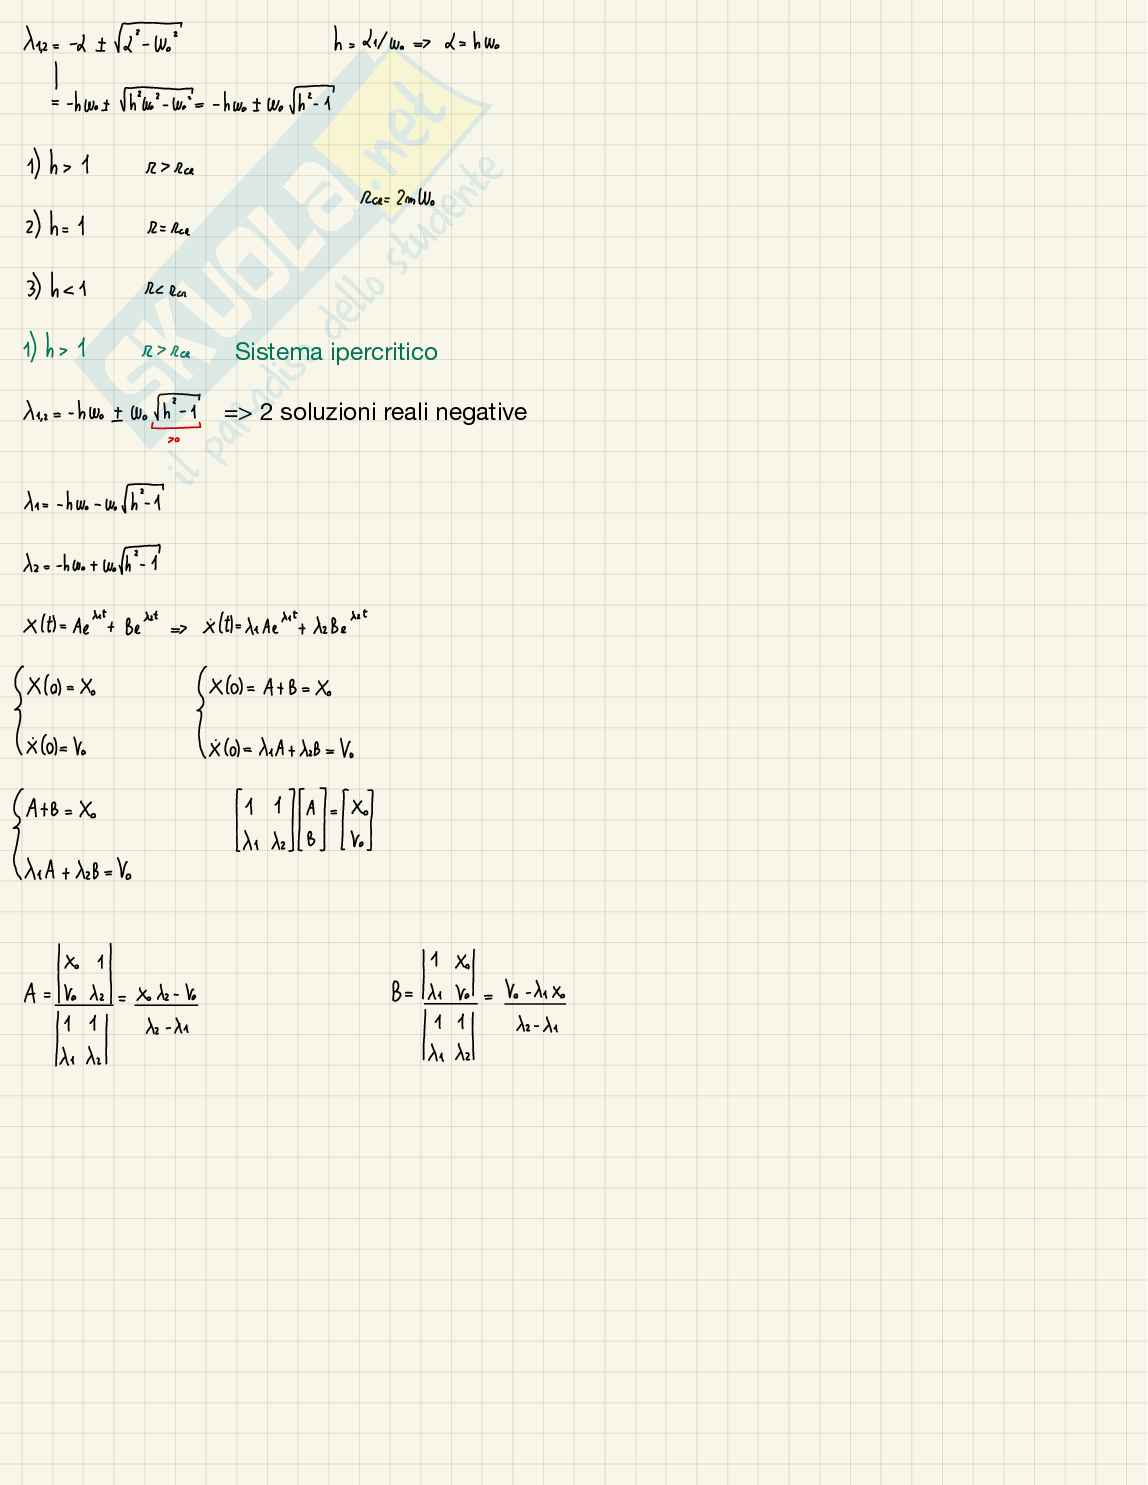 λ1,2 = -α ± √(α² - ω₀²)    h = α1/ω₀ => α = hω₀
= -hω₀ ± √(h²ω₀² - ω₀²) = -hω₀ ± ω₀√(h² - 1)
1) h > 1    r > rcr
rcr = 2mω₀
2) h = 1    r = rcr
3) h < 1    r < rcr
1) h > 1    r > rcr    Sistema ipercritico
λ1,2 = -hω₀ ± ω₀√(h² - 1)    => 2 soluzioni reali negative
>0
λ1 = -hω₀ - ω₀√(h² - 1)
λ2 = -hω₀ + ω₀√(h² - 1)
x(t) = Ae^λ1t + Be^λ2t => ẋ(t) = λ1Ae^λ1t + λ2Be^λ2t
{ x(0) = x₀    { x(0) = A+B = x₀
ẋ(0) = v₀    ẋ(0) = λ1A + λ2B = v₀
{ A+B = x₀    [1 1; λ1 λ2] [A; B] = [x₀; v₀]
λ1A + λ2B = v₀
A = |x₀ 1; v₀ λ2| / |1 1; λ1 λ2| = (x₀λ2 - v₀) / (λ2 - λ1)    B = |1 x₀; λ1 v₀| / |1 1; λ1 λ2| = (v₀ - λ1x₀) / (λ2 - λ1)
SKUOLA.net
il paradiso dello studente